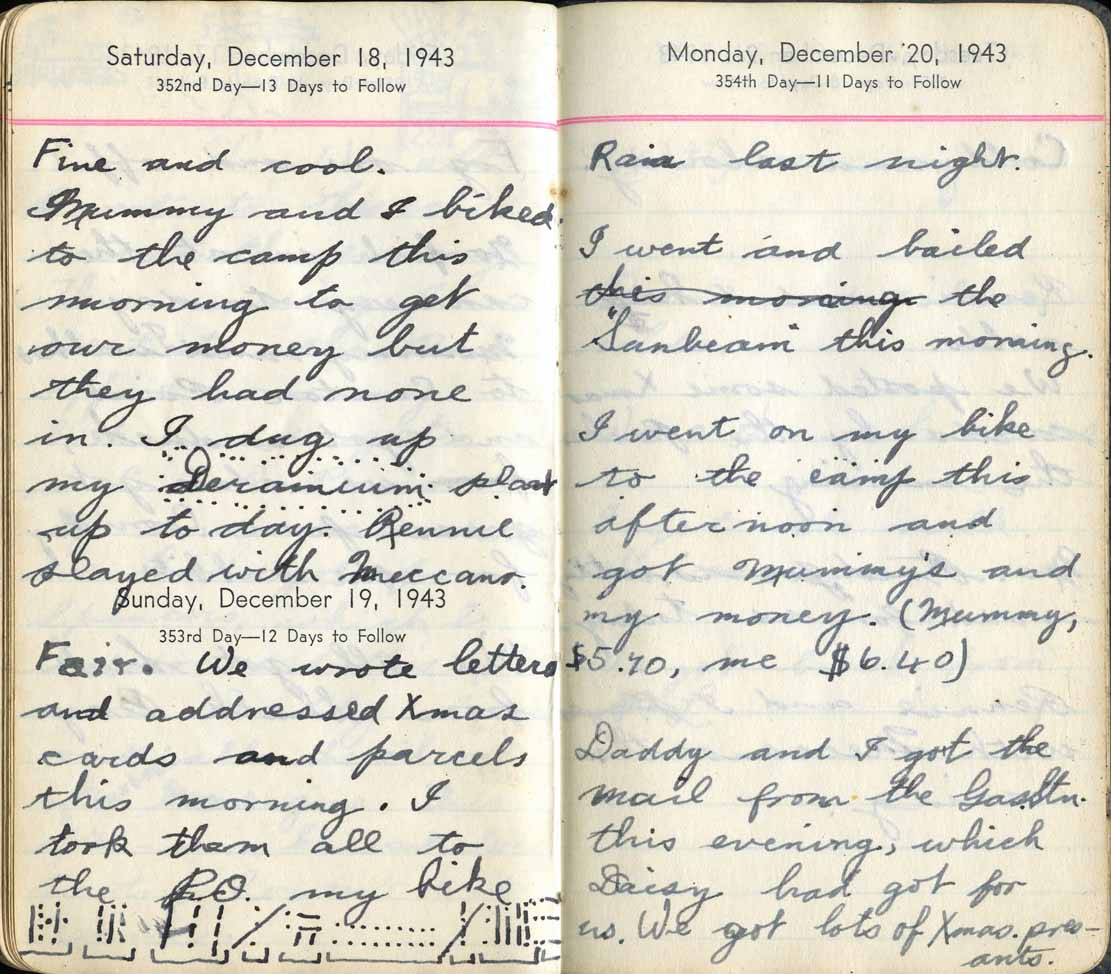 Saturday, December 18, 1943
352nd Day—13 Days to Follow
Fine and cool.
Mummy and I biked
to the camp this
morning to get
our money but
they had none
in. I dug up
my Geranium plant
up to day. Rennie
played with Meccano.
Sunday, December 19, 1943
353rd Day—12 Days to Follow
Fair. We wrote letters
and addressed Xmas
cards and parcels
this morning. I
took them all to
the P.O. my bike
Monday, December 20, 1943
354th Day—11 Days to Follow
Rain last night.
I went and bailed
this morning the
"Sunbeam" this morning.
I went on my bike
to the camp this
afternoon and
got Mummy's and
my money. (Mummy,
$5.70, me $6.40)
Daddy and I got the
mail from the GasStn.
this evening, which
Daisy had got for
us. We got lots of Xmas. pres-
ants.